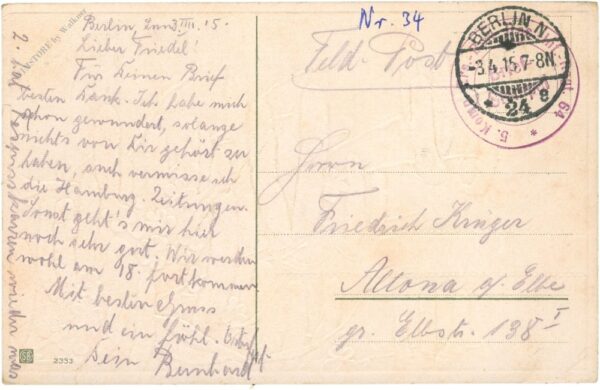 Berlin, den 3. IIII. 15.
Lieber Friedel!
Für Deinen Brief
besten Dank. Ich habe mich
schon gewundert, solange
nichts von Dir gehört zu
haben, auch vermisse ich
die Hamburg. Zeitungen.
Sonst geht's mir hier
noch sehr gut. Wir werden
wohl am 18. fortkommen
Mit besten Gruss
und ein fröhl. Osterf
Dein Bernhard
2.
Nr. 34
Feld-Post
BERLIN N
-3.4.15.7-8N
* 24 e
5. Komp.
64 *
Herrn
Friedrich Krüger
Altona a/ Elbe
gr. Elbstr. 138 I
2353